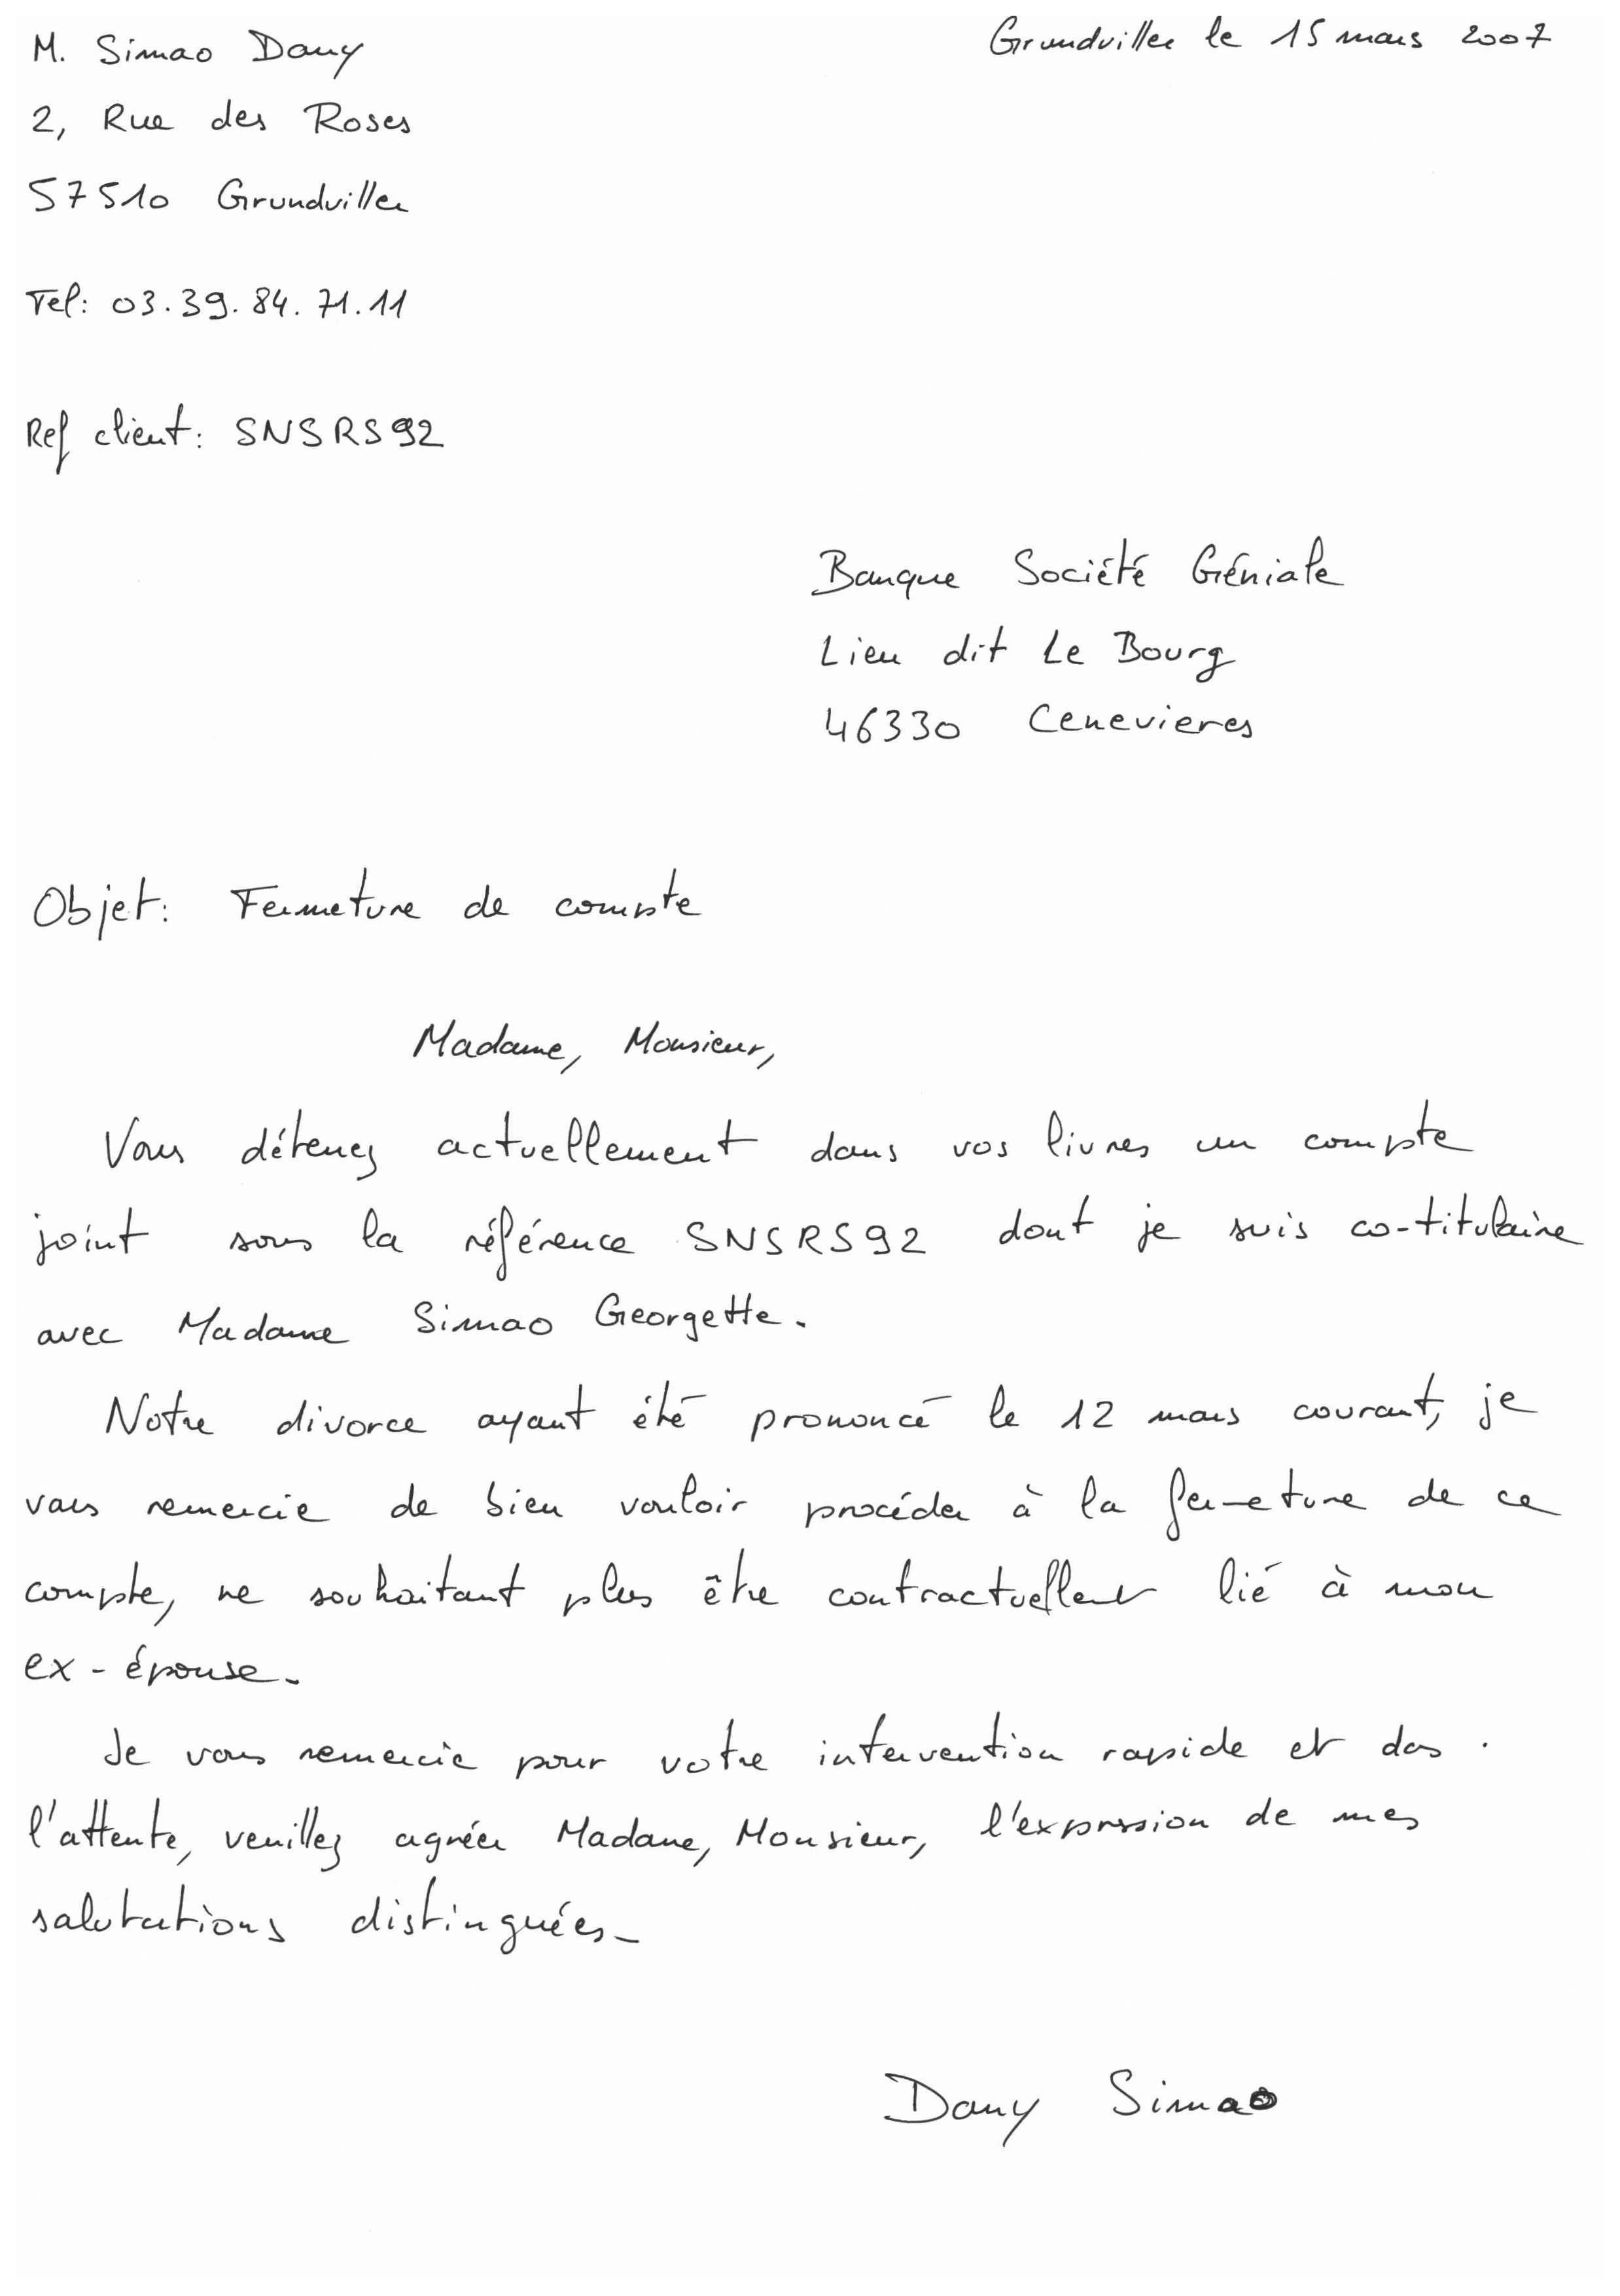 M. Simao Dany
Grundviller le 15 mars 2007
2, Rue des Roses
57510 Grundviller
Tel: 03.39.84.71.11
Ref client: SNSRS92
Banque Société Géniale
Lieu dit Le Bourg
46330 Cenevieres
Objet: Fermeture de compte
Madame, Monsieur,
Vous détenez actuellement dans vos livres un compte
joint sous la référence SNSRS92 dont je suis co-titulaire
avec Madame Simao Georgette.
Notre divorce ayant été prononcé le 12 mars courant, je
vous remercie de bien vouloir procéder à la fermeture de ce
compte, ne souhaitant plus être contractuellement lié à mon
ex-épouse.
Je vous remercie pour votre intervention rapide et dans
l'attente, veuillez agréer Madame, Monsieur, l'expression de mes
salutations distinguées.
Dany Simao